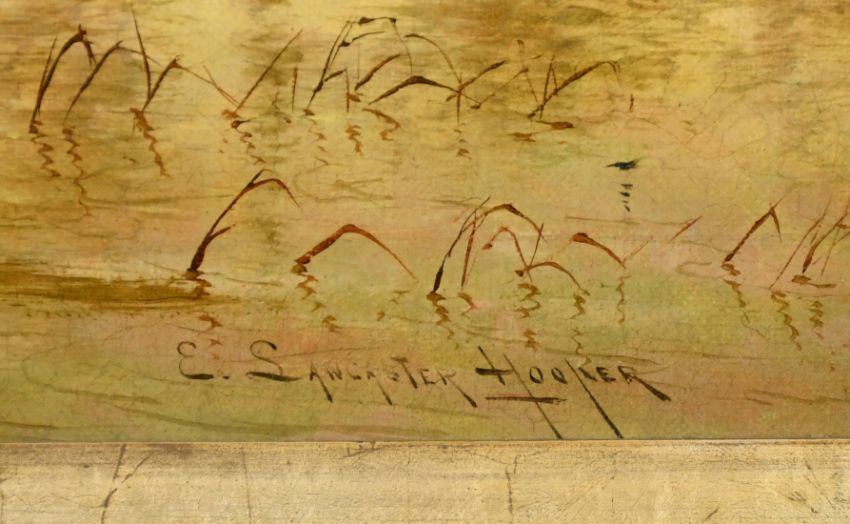 E. Lancaster Hooker